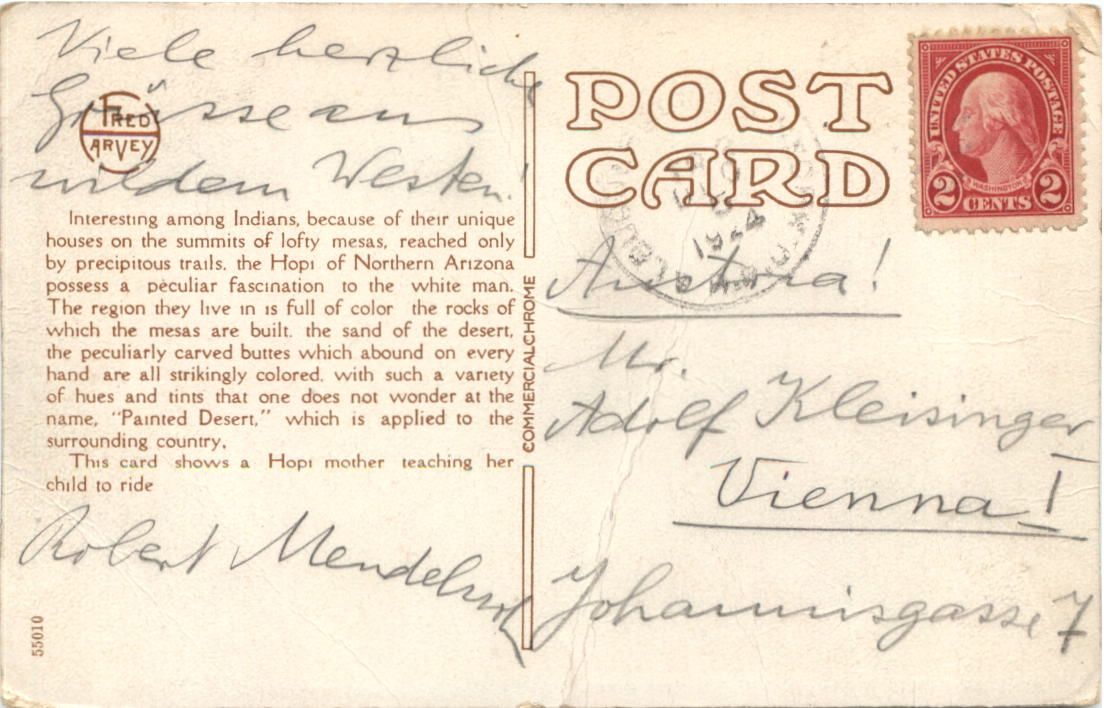 Viele herzliche
Grüsse aus
wildem Westen!
FRED HARVEY
Interesting among Indians, because of their unique
houses on the summits of lofty mesas, reached only
by precipitous trails, the Hopi of Northern Arizona
possess a peculiar fascination to the white man.
The region they live in is full of color the rocks of
which the mesas are built, the sand of the desert,
the peculiarly carved buttes which abound on every
hand are all strikingly colored, with such a variety
of hues and tints that one does not wonder at the
name, "Painted Desert," which is applied to the
surrounding country.
This card shows a Hopi mother teaching her
child to ride
Robert Mendelssohn
55010
COMMERCIALCHROME
POST
CARD
UNITED STATES POSTAGE
WASHINGTON
2 CENTS 2
1924
Austria!
Mr.
Adolf Kleisinger
Vienna!
Johannisgasse 7